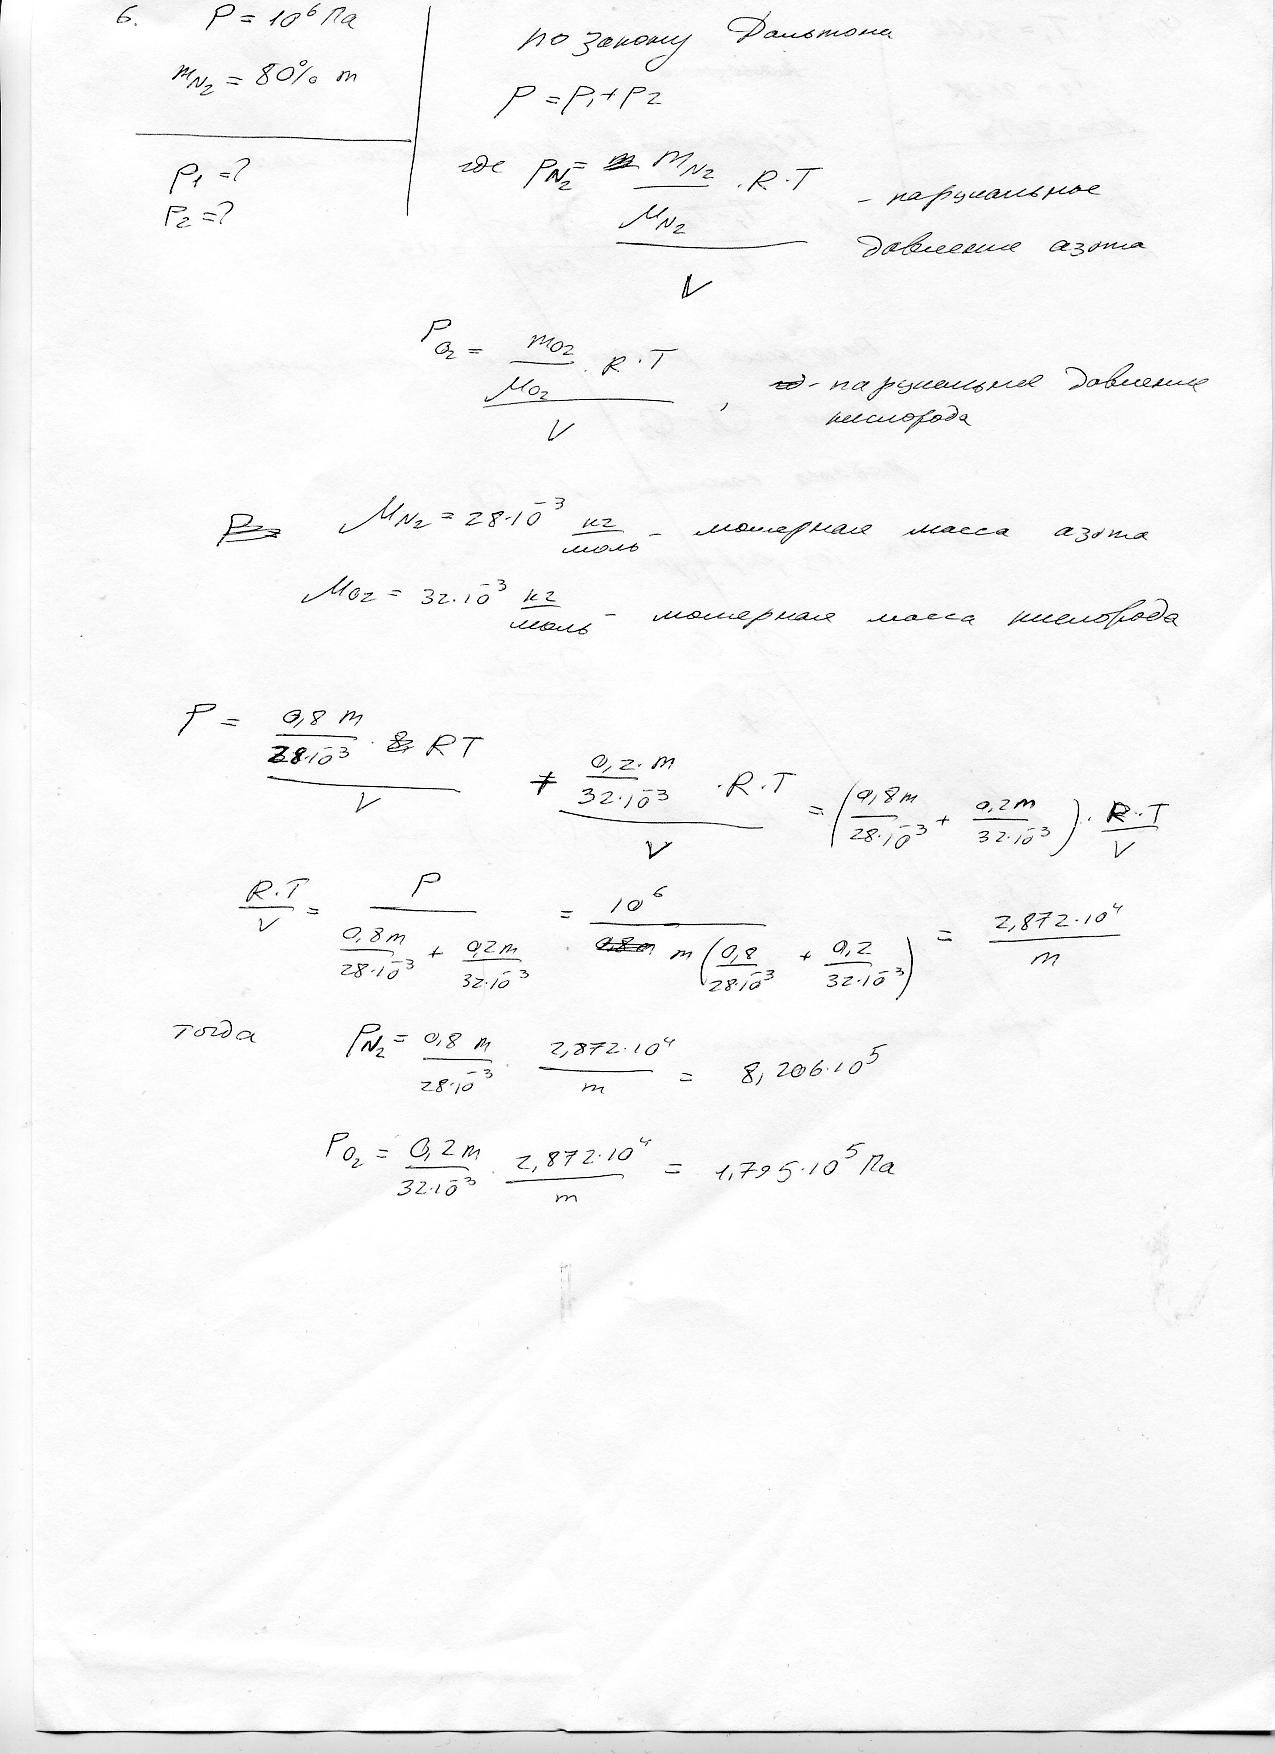 6. P = 10⁶ Па
m_N₂ = 80% m
P₁ = ?
P₂ = ?
по закону Дальтона
P = P₁ + P₂
где P_N₂ = ((m_N₂ / M_N₂) · R · T) / V - парциальное
давление азота
P_O₂ = ((m_O₂ / M_O₂) · R · T) / V , - парциальное давление
кислорода
M_N₂ = 28·10⁻³ кг/моль - молярная масса азота
M_O₂ = 32·10⁻³ кг/моль - молярная масса кислорода
P = ((0,8 m / 28·10⁻³) · RT) / V + ((0,2·m / 32·10⁻³) · R·T) / V = (0,8m / 28·10⁻³ + 0,2m / 32·10⁻³) · R·T / V
R·T / V = P / (0,8m / 28·10⁻³ + 0,2m / 32·10⁻³) = 10⁶ / m(0,8 / 28·10⁻³ + 0,2 / 32·10⁻³) = 2,872·10⁴ / m
тогда P_N₂ = 0,8 m / 28·10⁻³ · 2,872·10⁴ / m = 8,206·10⁵
P_O₂ = 0,2m / 32·10⁻³ · 2,872·10⁴ / m = 1,795·10⁵ Па